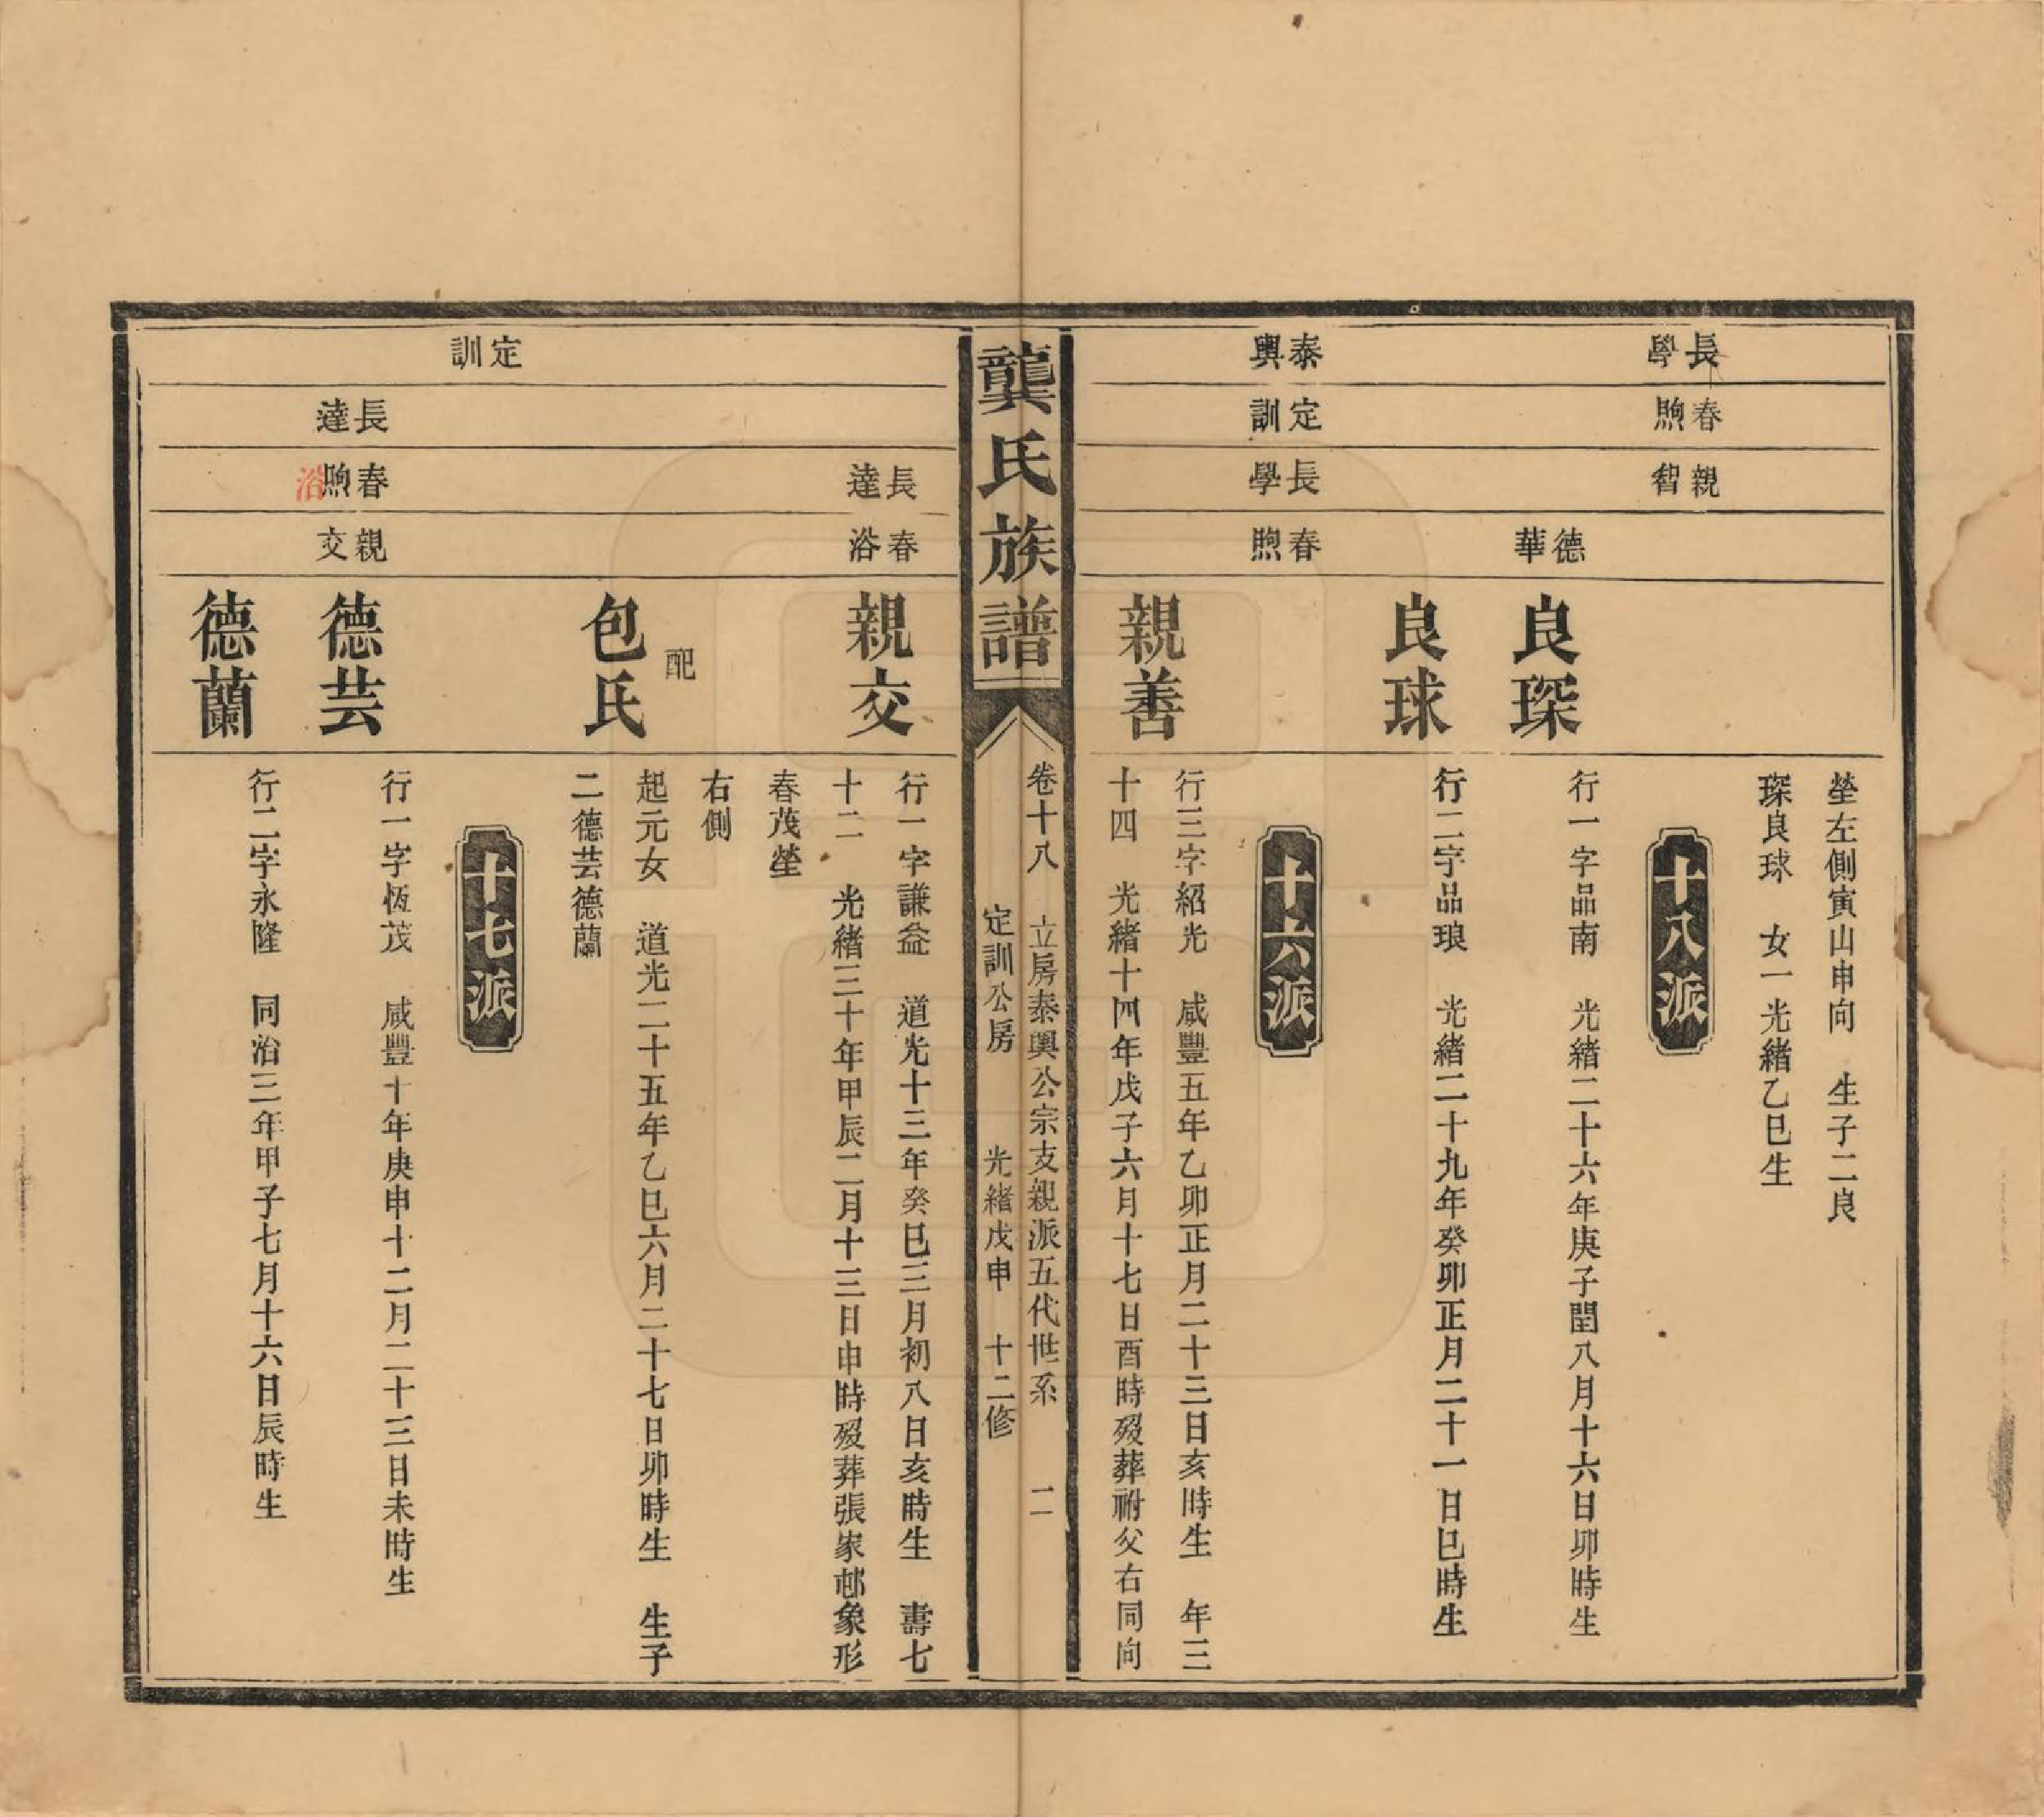 長學
春煦
親智
塋左側寅山申向　生子二良
琛良球　女一光緒乙巳生
十八派
德華
良琛
行一字品南　光緒二十六年庚子閏八月十六日卯時生
良球
行二字品琅　光緒二十九年癸卯正月二十一日巳時生
十六派
泰興
定訓
長學
春煦
親善
行三字紹光　咸豐五年乙卯正月二十三日亥時生　年三
十四　光緒十四年戊子六月十七日酉時歿葬祔父右同向
龔氏族譜
卷十八　立房泰興公宗支親派五代世系　二
定訓公房　光緒戊申　十二修
長達
春浴
親交
行一字謙益　道光十三年癸巳三月初八日亥時生　壽七
十二　光緒三十年甲辰二月十三日申時歿葬張家邨象形
春茂塋
右側
配
包氏
起元女　道光二十五年乙巳六月二十七日卯時生　生子
二德芸德蘭
十七派
定訓
長達
春煦
浴
親交
德芸
行一字恆茂　咸豐十年庚申十二月二十三日未時生
德蘭
行二字永隆　同治三年甲子七月十六日辰時生